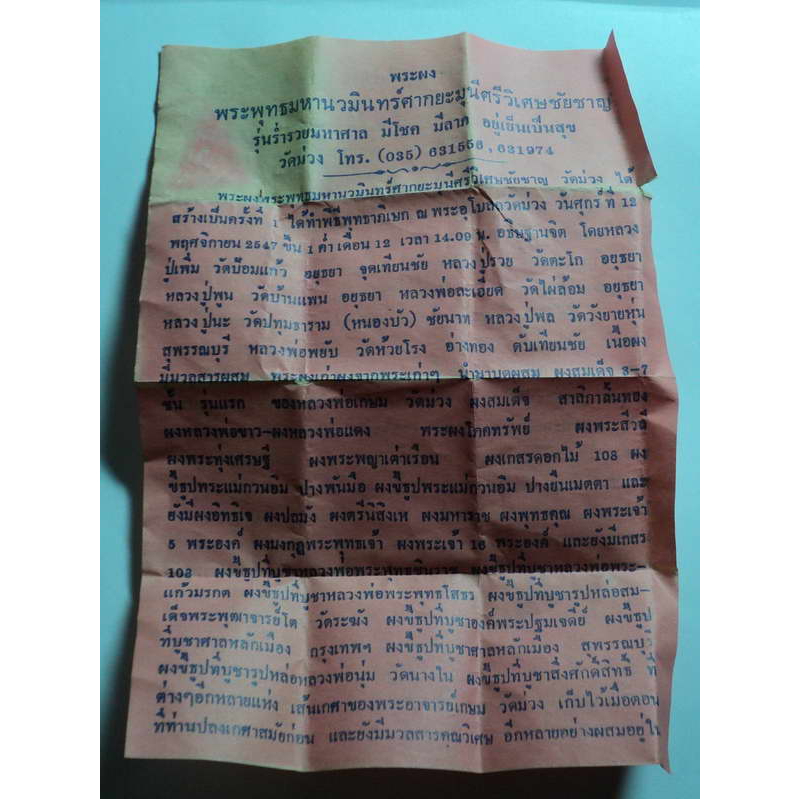 พระผง
พระพุทธมหานวมินทร์ศากยะมุนีศรีวิเศษชัยชาญ
รุ่นร่ำรวยมหาศาล มีโชค มีลาภ อยู่เย็นเป็นสุข
วัดม่วง โทร. (035) 631556, 631974
พระผงพระพุทธมหานวมินทร์ศากยะมุนีศรีวิเศษชัยชาญ วัดม่วง ได้
สร้างเป็นครั้งที่ 1 ได้ทำพิธีพุทธาภิเษก ณ พระอุโบสถวัดม่วง วันศุกร์ ที่ 12
พฤศจิกายน 2547 ขึ้น 1 ค่ำ เดือน 12 เวลา 14.09 น. อธิษฐานจิต โดยหลวง
ปู่เพิ่ม วัดป้อมแก้ว อยุธยา จุดเทียนชัย หลวงปู่รวย วัดตะโก อยุธยา
หลวงปู่พูน วัดบ้านแพน อยุธยา หลวงพ่อละเอียด วัดไผ่ล้อม อยุธยา
หลวงปู่นะ วัดปทุมธาราม (หนองบัว) ชัยนาท หลวงปู่พล วัดวังยายหุ่น
สุพรรณบุรี หลวงพ่อพยับ วัดห้วยโรง อ่างทอง ดับเทียนชัย เนื้อผง
มีมวลสารผสม พระผงเก่าผงจากพระเก่าๆ นำมาบดผสม ผงสมเด็จ 3-7
ชั้น รุ่นแรก ของหลวงพ่อเกษม วัดม่วง ผงสมเด็จ สาลิกาลิ้นทอง
ผงหลวงพ่อขาว-ผงหลวงพ่อแดง พระผงโภคทรัพย์ ผงพระสีวลี
ผงพระทุ่งเศรษฐี ผงพระพญาเต่าเรือน ผงเกสรดอกไม้ 108 ผง
ขี้ธูปพระแม่กวนอิม ปางพันมือ ผงขี้ธูปพระแม่กวนอิม ปางยืนเมตตา และ
ยังมีผงอิทธิเจ ผงปถมัง ผงตรีนิสิงเห ผงมหาราช ผงพุทธคุณ ผงพระเจ้า
5 พระองค์ ผงมงกุฎพระพุทธเจ้า ผงพระเจ้า 16 พระองค์ และยังมีเกสร
108 ผงขี้ธูปที่บูชาหลวงพ่อพระพุทธชินราช ผงขี้ธูปที่บูชาหลวงพ่อพระ-
แก้วมรกต ผงขี้ธูปที่บูชาหลวงพ่อพระพุทธโสธร ผงขี้ธูปที่บูชารูปหล่อสม-
เด็จพระพุฒาจารย์โต วัดระฆัง ผงขี้ธูปที่บูชาองค์พระปฐมเจดีย์ ผงขี้ธูป
ที่บูชาศาลหลักเมือง กรุงเทพฯ ผงขี้ธูปที่บูชาศาลหลักเมือง สุพรรณบุรี
ผงขี้ธูปที่บูชารูปหล่อหลวงพ่อนุ่ม วัดนางใน ผงขี้ธูปที่บูชาสิ่งศักดิ์สิทธิ์ ที่
ต่างๆอีกหลายแห่ง เส้นเกศาของพระอาจารย์เกษม วัดม่วง เก็บไว้เมื่อตอน
ที่ท่านปลงเกศาสมัยก่อน และยังมีมวลสารคุณวิเศษ อีกหลายอย่างผสมอยู่ใน